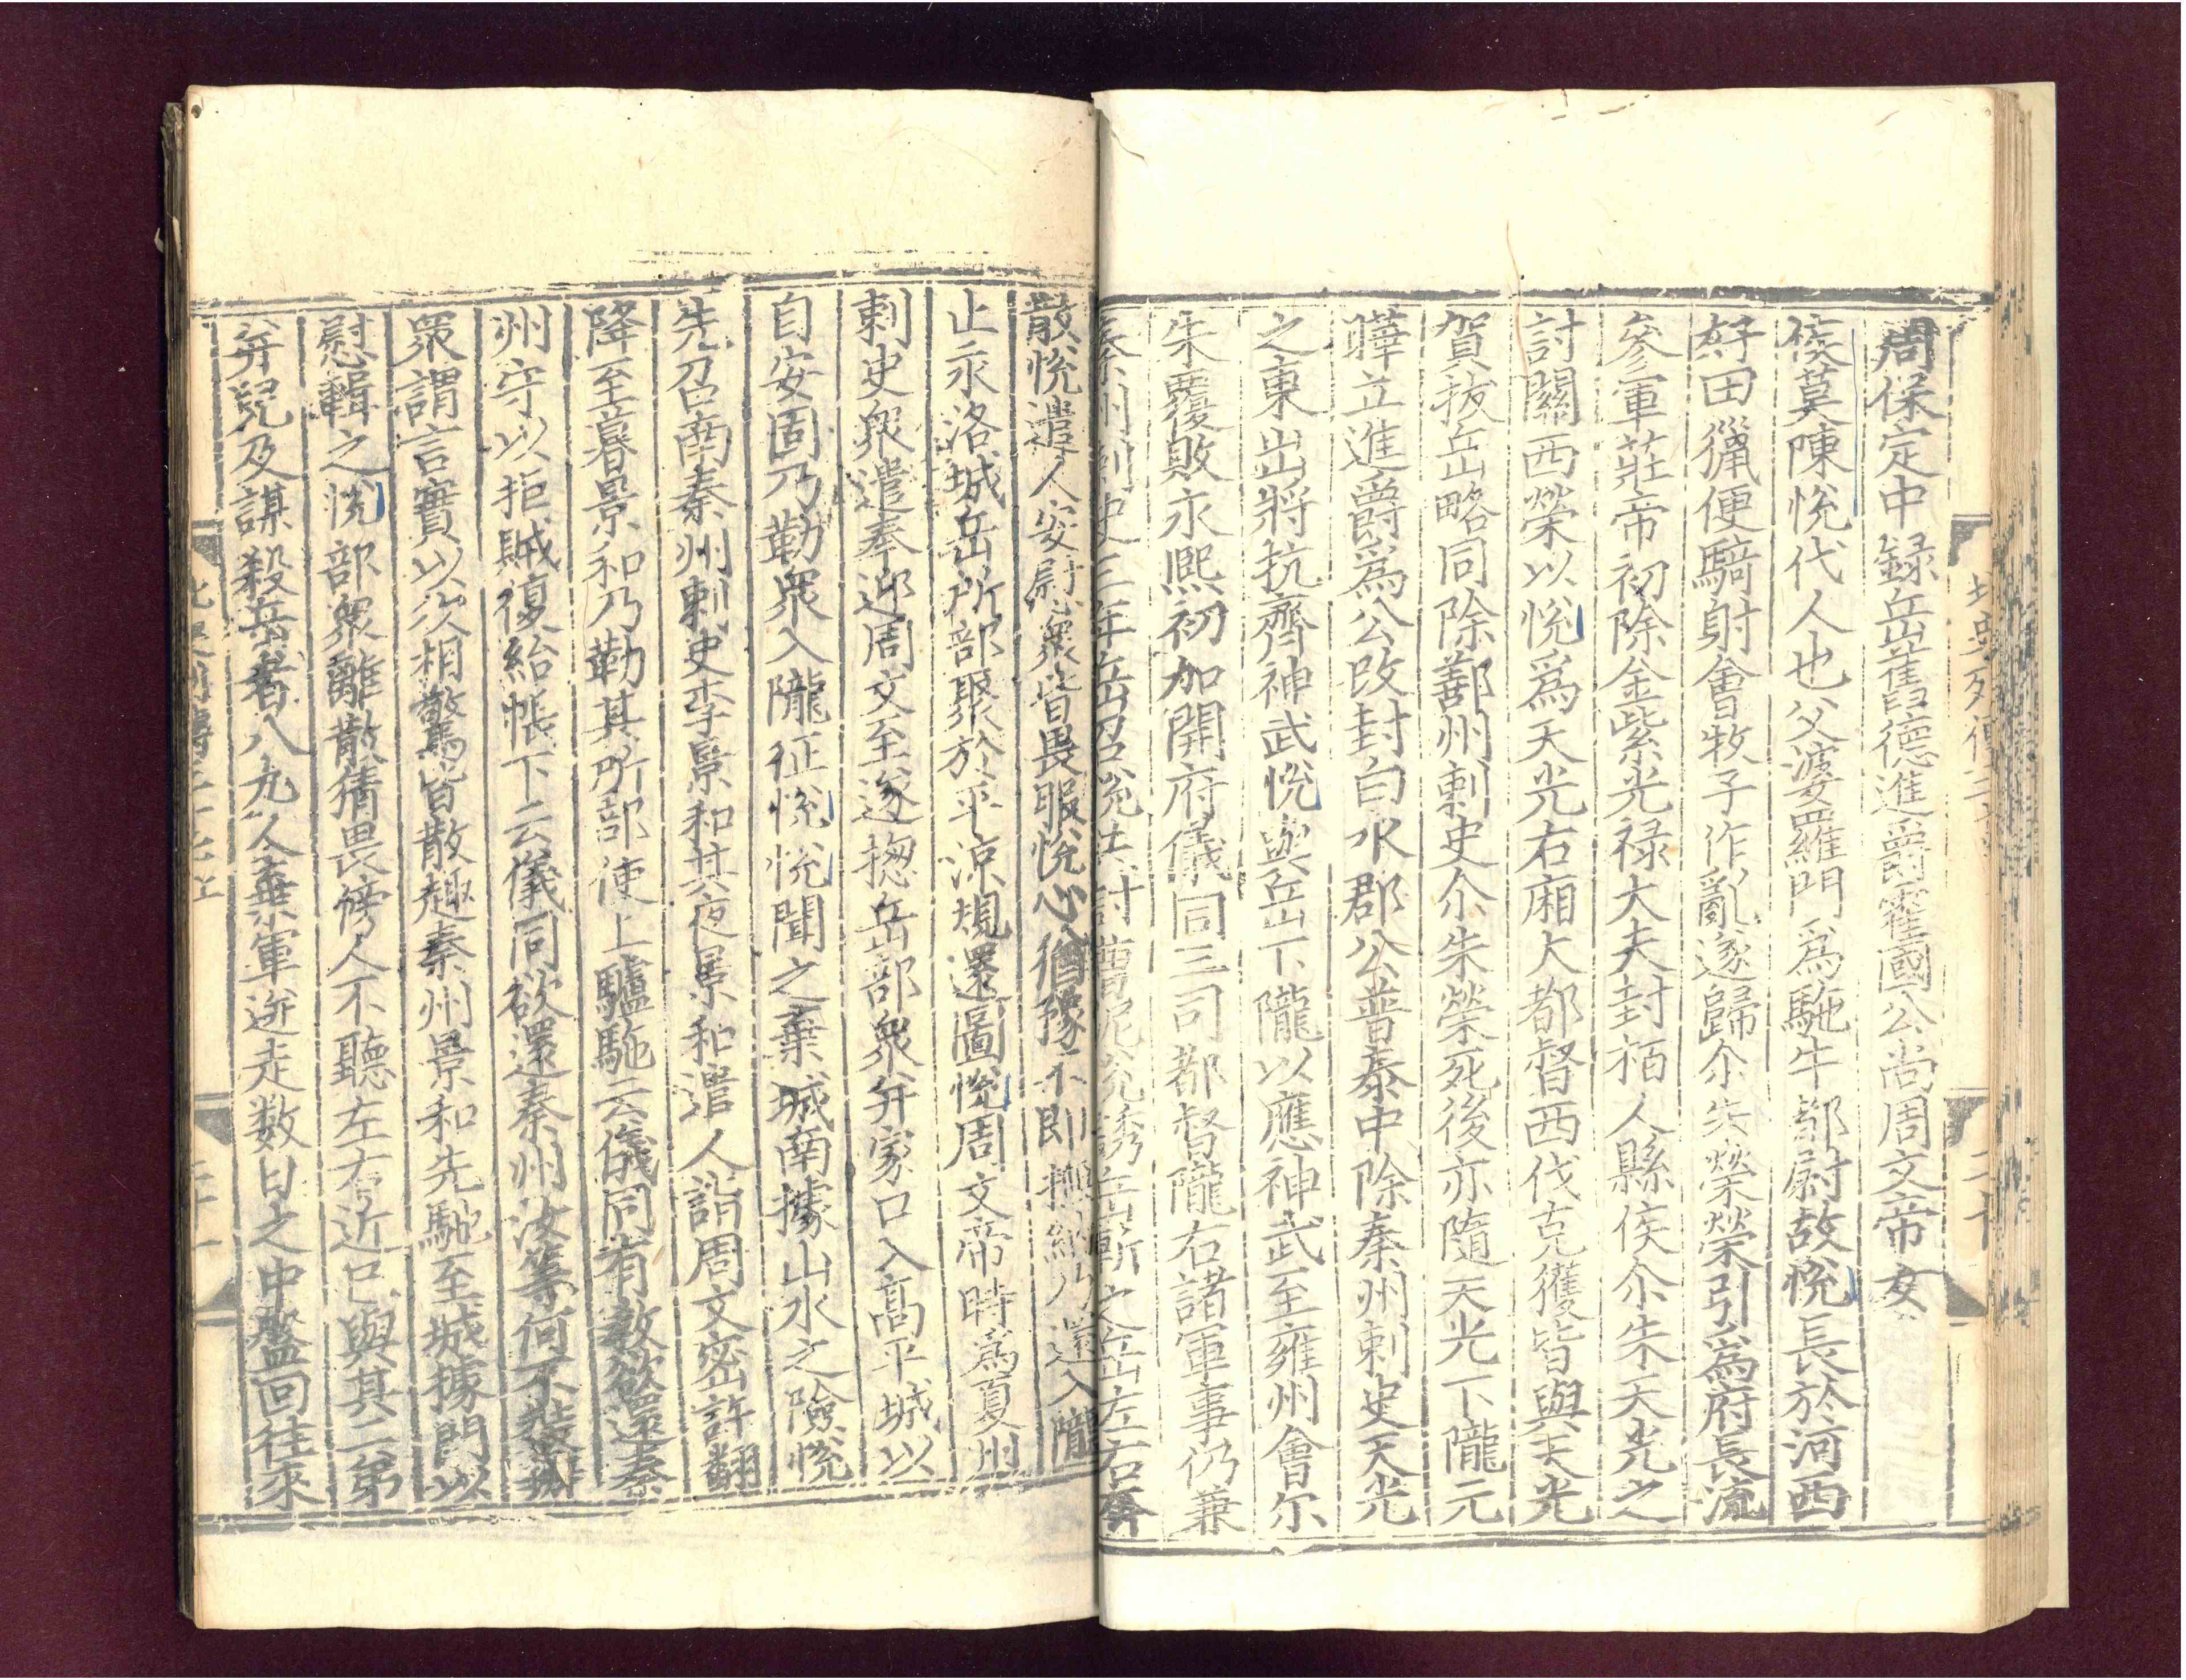 周保定中録岳舊德進爵霍國公尚周文帝女
侯莫陳悅代人也父婆羅門爲駞牛都尉故悅長於河西
好田獵便騎射會牧子作亂遂歸尒朱榮榮引爲府長流
參軍莊帝初除金紫光禄大夫封栢人縣侯尒朱天光之
討關西榮以悅爲天光右廂大都督西伐克獲皆與天光
賀拔岳略同除鄯州刺史尒朱榮死後亦隨天光下隴元
曄立進爵爲公改封白水郡公普泰中除秦州刺史天光
之東出將抗齊神武悅與岳下隴以應神武至雍州會尒
朱覆敗永熙初加開府儀同三司都督隴右諸軍事仍兼
秦州刺史三年岳召悅共討曹泥悅誘岳斬之岳左右奔
散悅遣人安慰衆皆畏服悅心猶豫不即撫納乃還入隴
止永洛城岳所部聚於平涼規還圖悅周文帝時爲夏州
刺史衆遣奉迎周文至遂揔岳部衆并家口入高平城以
自安固乃勒衆入隴征悅悅聞之棄城南據山水之險悅
先召南秦州刺史李景和其夜景和遣人詣周文密許翻
降至暮景和乃勒其所部使上驢駞云儀同有教欲還秦
州守以拒賊復紿帳下云儀同欲還秦州汝等何不裝辦
衆謂言實以次相驚皆散趣秦州景和先馳至城據門以
慰輯之悅部衆離散猜畏傍人不聽左右近己與其二弟
并兒及謀殺岳者八九人棄軍迸走數日之中盤回往來